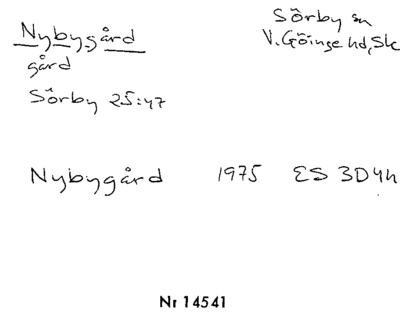 Nybygård
Sörby sn
V. Göinge hd, Sk
gård
Sörby 25:47
Nybygård 1975 ES 3D4h
Nr 14541